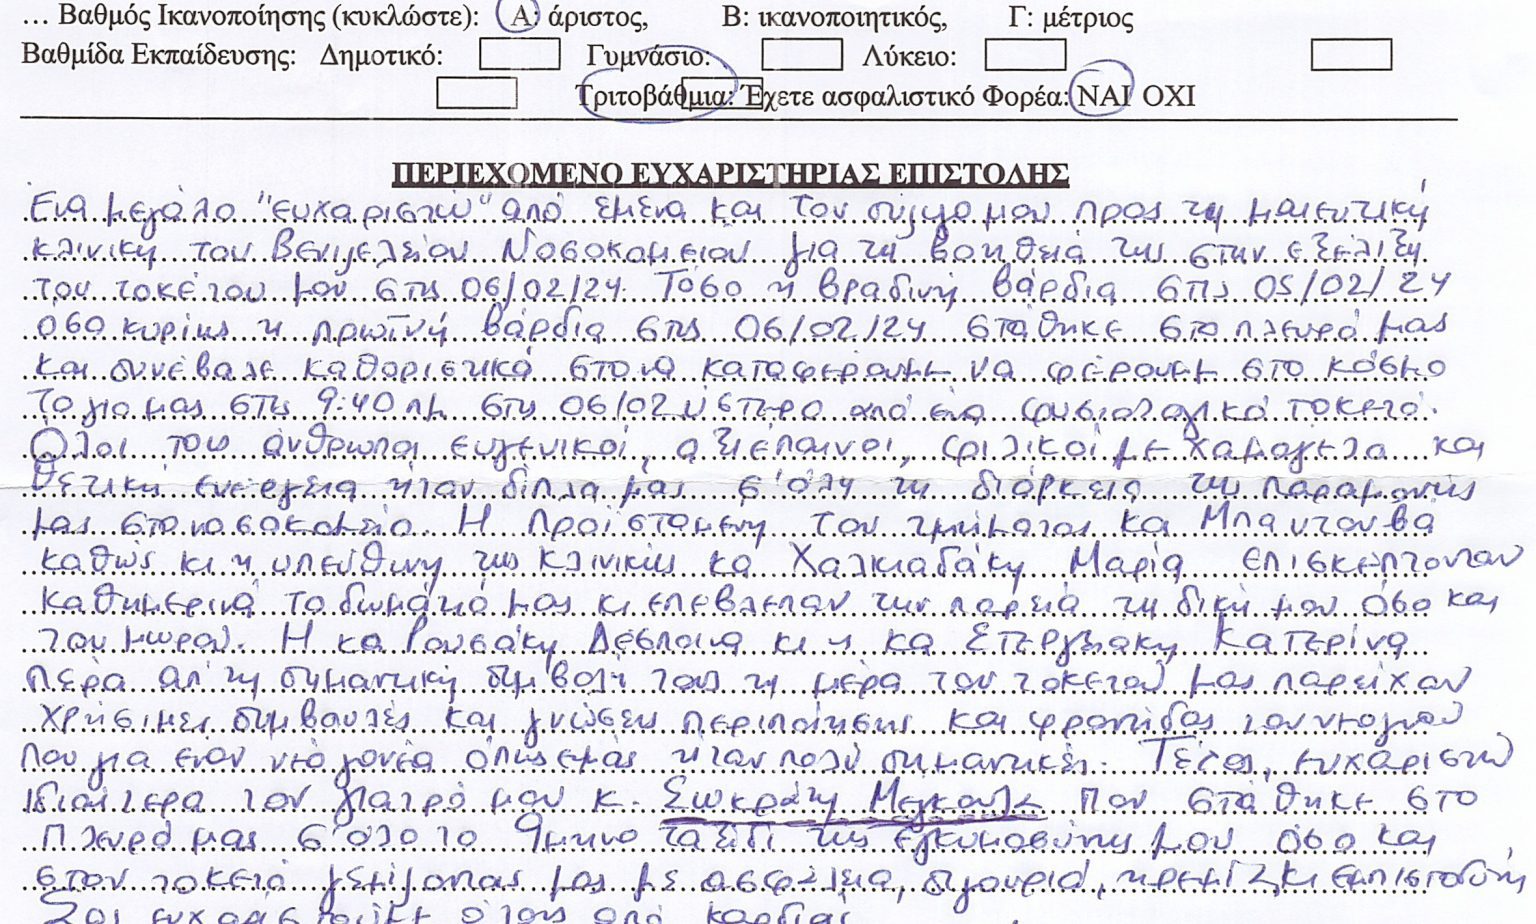 ... Βαθμός Ικανοποίησης (κυκλώστε): Α: άριστος, Β: ικανοποιητικός, Γ: μέτριος
Βαθμίδα Εκπαίδευσης: Δημοτικό: Γυμνάσιο: Λύκειο:
Τριτοβάθμια: Έχετε ασφαλιστικό Φορέα: ΝΑΙ ΟΧΙ
ΠΕΡΙΕΧΟΜΕΝΟ ΕΥΧΑΡΙΣΤΗΡΙΑΣ ΕΠΙΣΤΟΛΗΣ
Ένα μεγάλο "ευχαριστώ" από εμένα και τον σύζυγο μου προς τη μαιευτική
κλινική του Βενιζελείου Νοσοκομείου για τη βοήθειά της στην εξέλιξη
του τοκετού μου στις 06/02/24. Τόσο η βραδινή βάρδια στις 05/02/24
όσο κυρίως η πρωϊνή βάρδια στις 06/02/24 στάθηκε στο πλευρό μας
και συνέβαλε καθοριστικά στο να καταφέρουμε να φέρουμε στο κόσμο
το γιο μας στις 9:40 πμ στις 06/02 ύστερα από ένα φυσιολογικό τοκετό.
Όλοι τους άνθρωποι ευγενικοί, αξιέπαινοι, φιλικοί με χαμόγελα και
θετική ενέργεια ήταν δίπλα μας σ'όλη τη διάρκεια της παραμονής
μας στο νοσοκομείο. Η Προϊσταμένη του τμήματος κα Μπαντουβά
καθώς κι η υπεύθυνη της κλινικής κα Χαλκιαδάκη Μαρία επισκέπτονταν
καθημερινά το δωμάτιό μας κι επέβλεπαν την πορεία τη δική μου όσο και
του μωρού. Η κα Ρουσάκη Δέσποινα κι η κα Στεργιάκη Κατερίνα
πέρα απ'τη σημαντική συμβολή τους τη μέρα του τοκετού μας παρείχαν
χρήσιμες συμβουλές και γνώσεις περιποίησης και φροντίδας του νεογνού
που για έναν νέο γονέα όπως εμάς ήταν πολύ σημαντικές. Τέλος, ευχαριστώ
ιδιαίτερα τον γιατρό μου κ. Σωκράτη Μεγκούλε που στάθηκε στο
πλευρό μας σ'όλο το 9μηνο ταξίδι της εγκυμοσύνης μου όσο και
στον τοκετό γεμίζοντας μας με ασφάλεια, σιγουριά, ηρεμία κι εμπιστοσύνη
Σας ευχαριστούμε όλους από καρδιάς